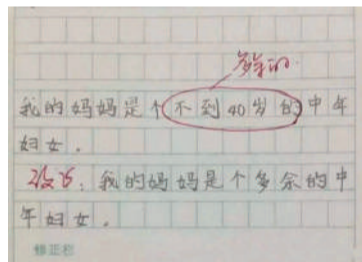 多余的
我的妈妈是个不到40岁的中年
妇女。
改语：我的妈妈是个多余的中
年妇女。
修正栏